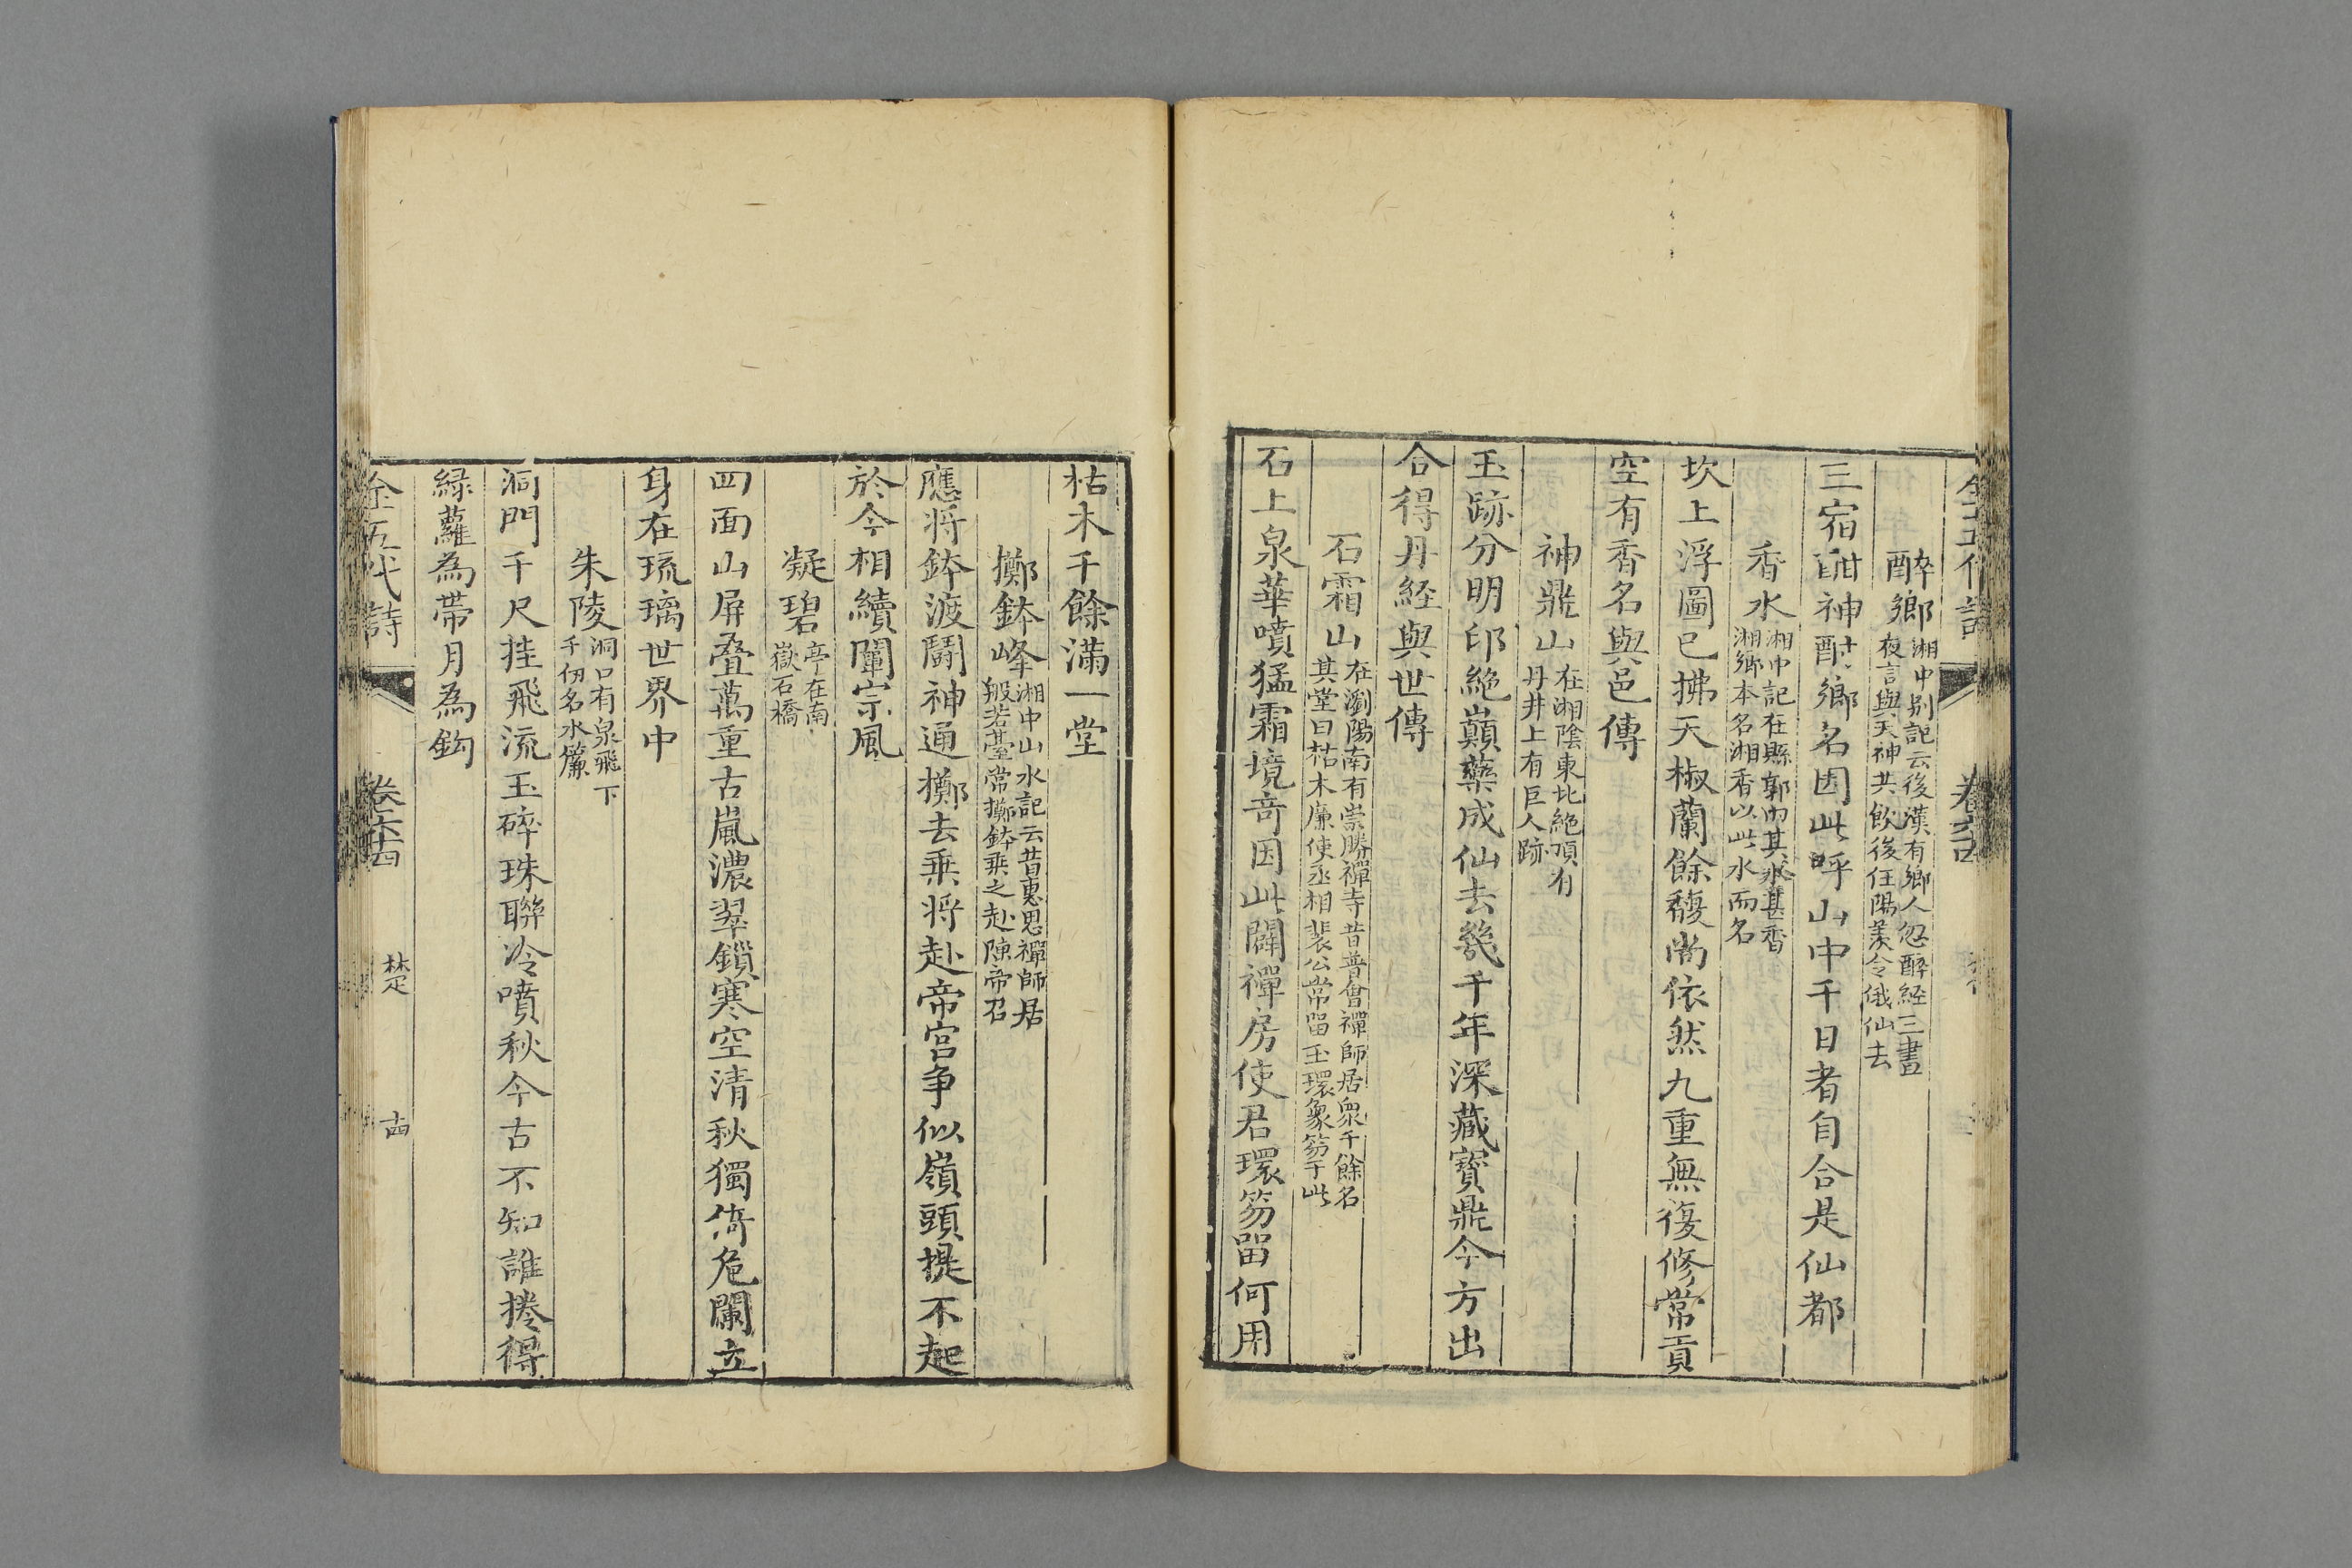 全五代詩 卷六十四
醉鄉 湘中別記云後漢有鄉人忽醉經三晝
夜言與天神共飲後任陽羨令俄仙去
三宿酣神酎鄉名因此呼山中千日者自合是仙都
香水 湘中記在縣郭內其水甚香
湘鄉本名湘香以此水而名
坎上浮圖已拂天椒蘭餘馥尚依然九重無復修常貢
空有香名與邑傳
神鼎山 在湘陰東北絕頂有
丹井上有巨人跡
玉跡分明印絶巔藥成仙去幾千年深藏寳鼎今方出
合得丹經與世傳
石霜山 在瀏陽南有崇勝禪寺昔普會禪師居眾千餘名
其堂曰枯木廉使丞相裴公常留玉環象笏于此
石上泉華噴猛霜境奇因此闢禪房使君環笏留何用
枯木千餘滿一堂
擲鉢峰 湘中山水記云昔惠思禪師居
般若臺常擲鉢乘之赴陳帝召
應将鉢渡鬪神通擲去乗将赴帝宫争似嶺頭提不起
於今相續闡宗風
凝碧 亭在南
嶽石橋
四面山屏叠萬重古嵐濃翠鎖寒空清秋獨倚危闌立
身在琉璃世界中
朱陵 洞口有泉飛下
千仞名水簾
洞門千尺挂飛流玉碎珠聯冷噴秋今古不知誰捲得
緑蘿為帶月為鈎
全五代詩 卷六十四 楚 十四